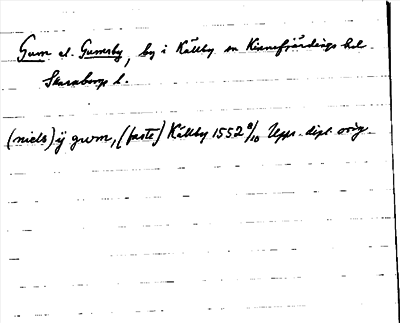 Gum el. Gumsby, by i Källby sn Kinnefjärdings hd.
Skaraborgs l.
(niels) ij gwm, (faste) Källby 1552 9/10 Upps. dipl. orig.